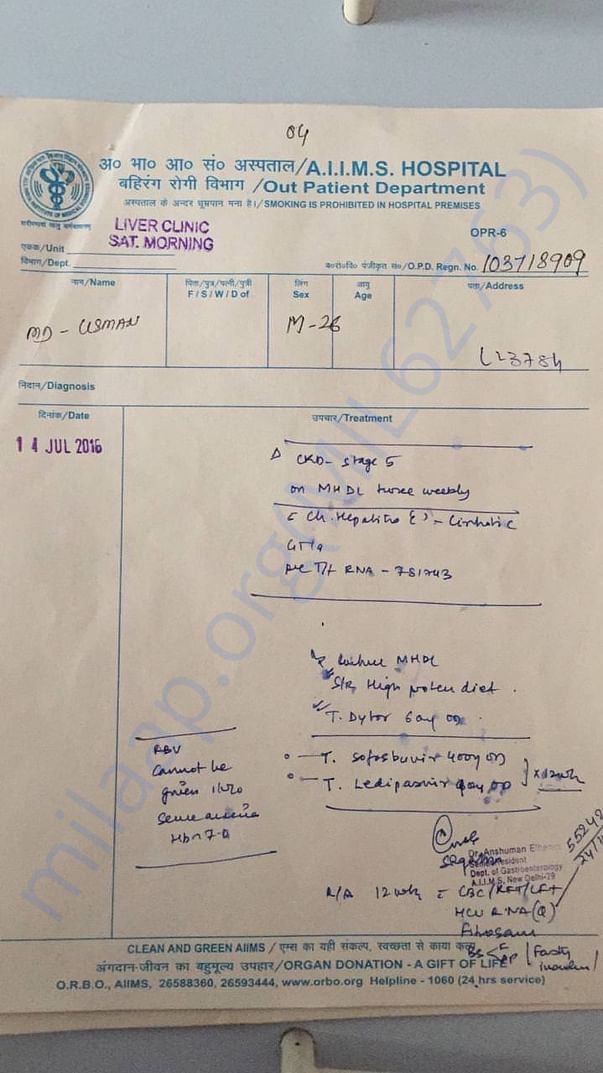 04
अ० भा० आ० सं० अस्पताल/A.I.I.M.S. HOSPITAL
बहिरंग रोगी विभाग /Out Patient Department
अस्पताल के अन्दर धूम्रपान मना है।/SMOKING IS PROHIBITED IN HOSPITAL PREMISES
LIVER CLINIC
SAT. MORNING
OPR-6
एकक/Unit
विभाग/Dept.
ब०रो०वि० पंजीकृत सं०/O.P.D. Regn. No. 103718909
नाम/Name
पिता/पुत्र/पत्नी/पुत्री
F / S / W / D of
लिंग
Sex
आयु
Age
पता/Address
MD - USMAN
M-26
निदान/Diagnosis
दिनांक/Date
उपचार/Treatment
14 JUL 2016
Δ CKD- stage 5
on MHDL twice weekly
Ch. Hepatitis - Cirrhotic
GT1a
T/t RNA - 781743
MHDL
High protein diet.
T. Dytor OD
T. Sofosbuvir 400mg OD
T. Ledipasvir 90mg OD
x 12wk
RBV
cannot be
given
severe anemia
Hb
Dr. Anshuman
Dept. of Gastroenterology
A.I.I.M.S. New Delhi-29
R/A 12 wk CBC/RFT/LFT
HCV RNA (Q)
Fibroscan
milaap.org(MIL62763)
CLEAN AND GREEN AIIMS / एम्स का यही संकल्प, स्वच्छता से काया कल्प
अंगदान-जीवन का बहुमूल्य उपहार/ORGAN DONATION - A GIFT OF LIFE
O.R.B.O., AIIMS, 26588360, 26593444, www.orbo.org Helpline - 1060 (24 hrs service)